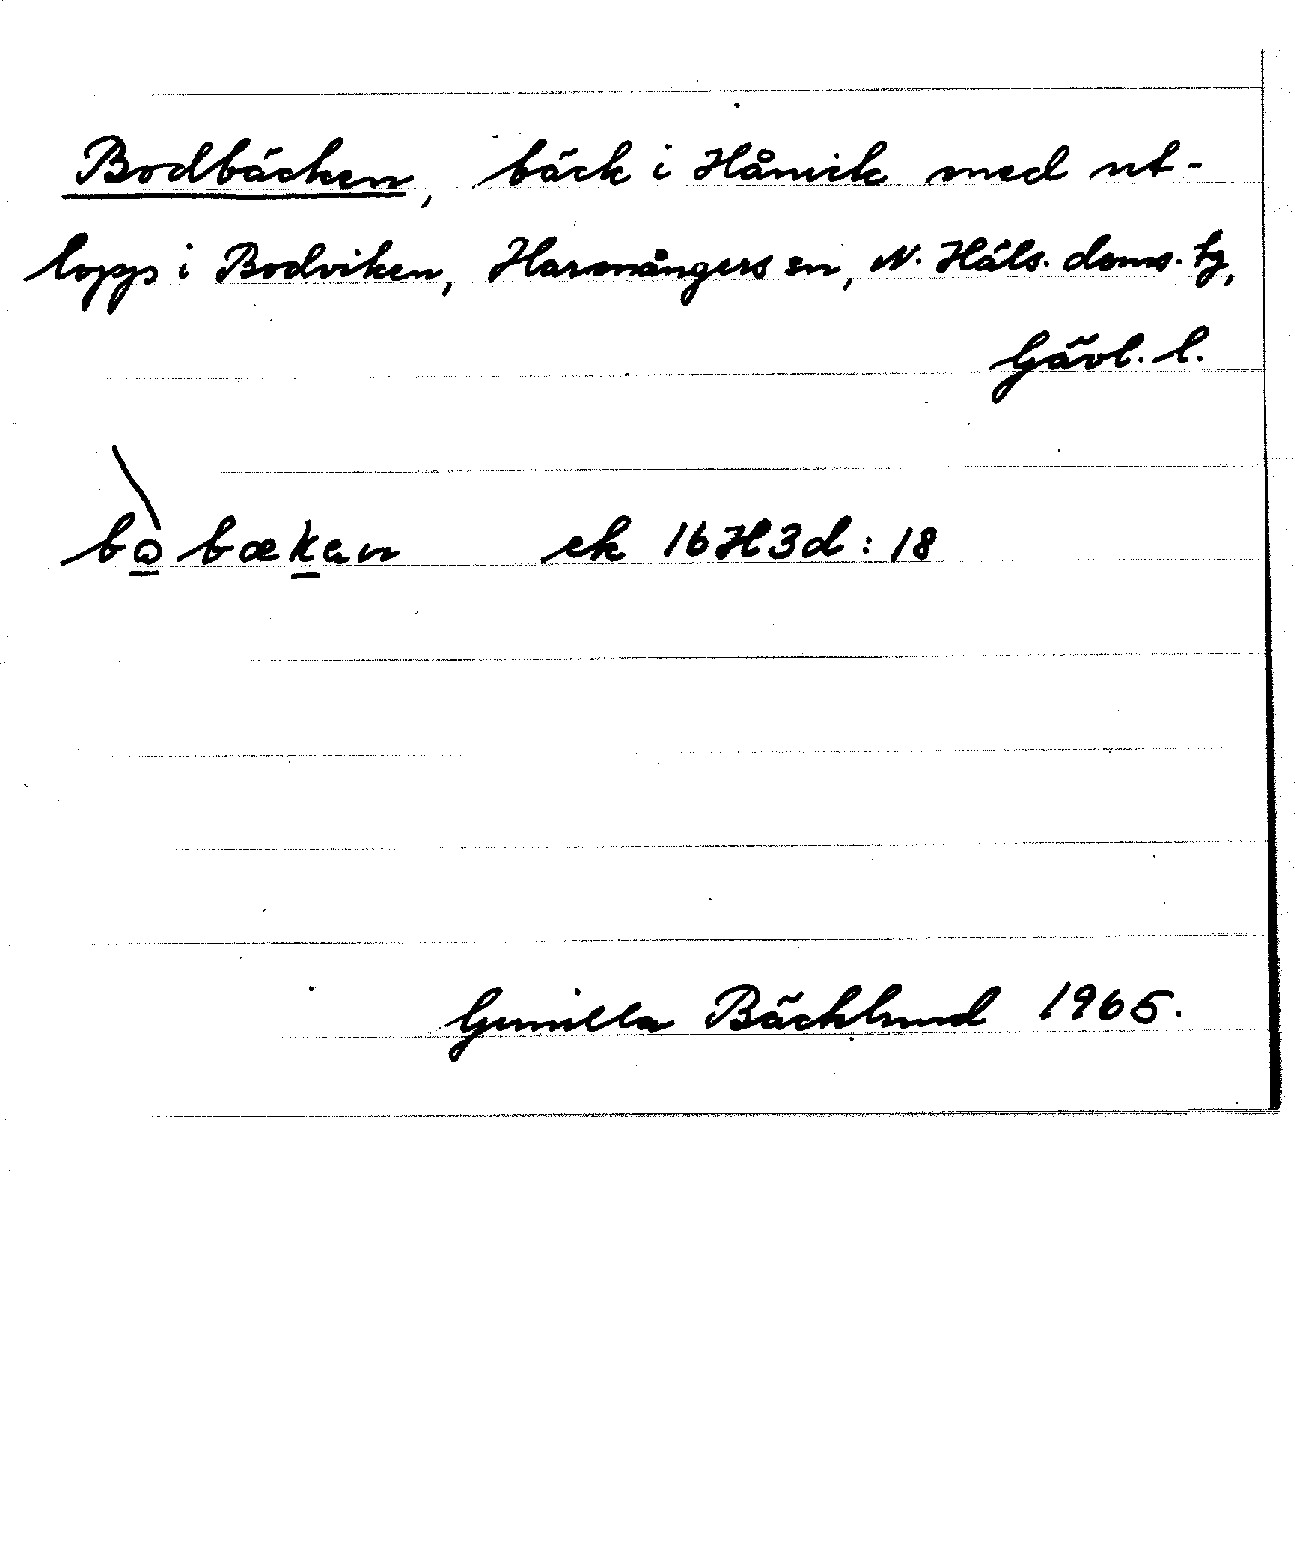 Bodbäcken, bäck i Hånick med ut-
lopp i Bodviken, Harmångers sn, N. Häls. doms. tg,
Gävl. l.
bo̠bæk̠en ek 16H3d:18
Gunilla Bäcklund 1965.